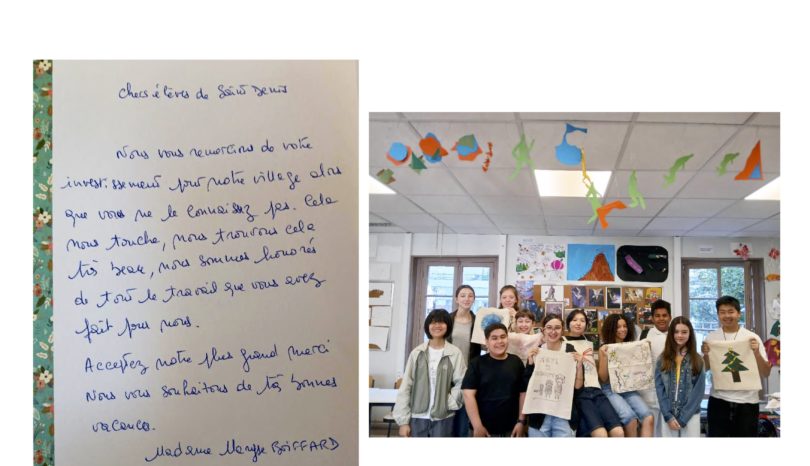 Chers élèves de Saint Denis
Nous vous remercions de votre
investissement pour notre village alors
que vous ne le connaissez pas. Cela
nous touche, nous trouvons cela
très beau, nous sommes honorés
de tout le travail que vous avez
fait pour nous.
Acceptez notre plus grand merci
Nous vous souhaitons de très bonnes
vacances.
Madame Maryse BOIFFARD